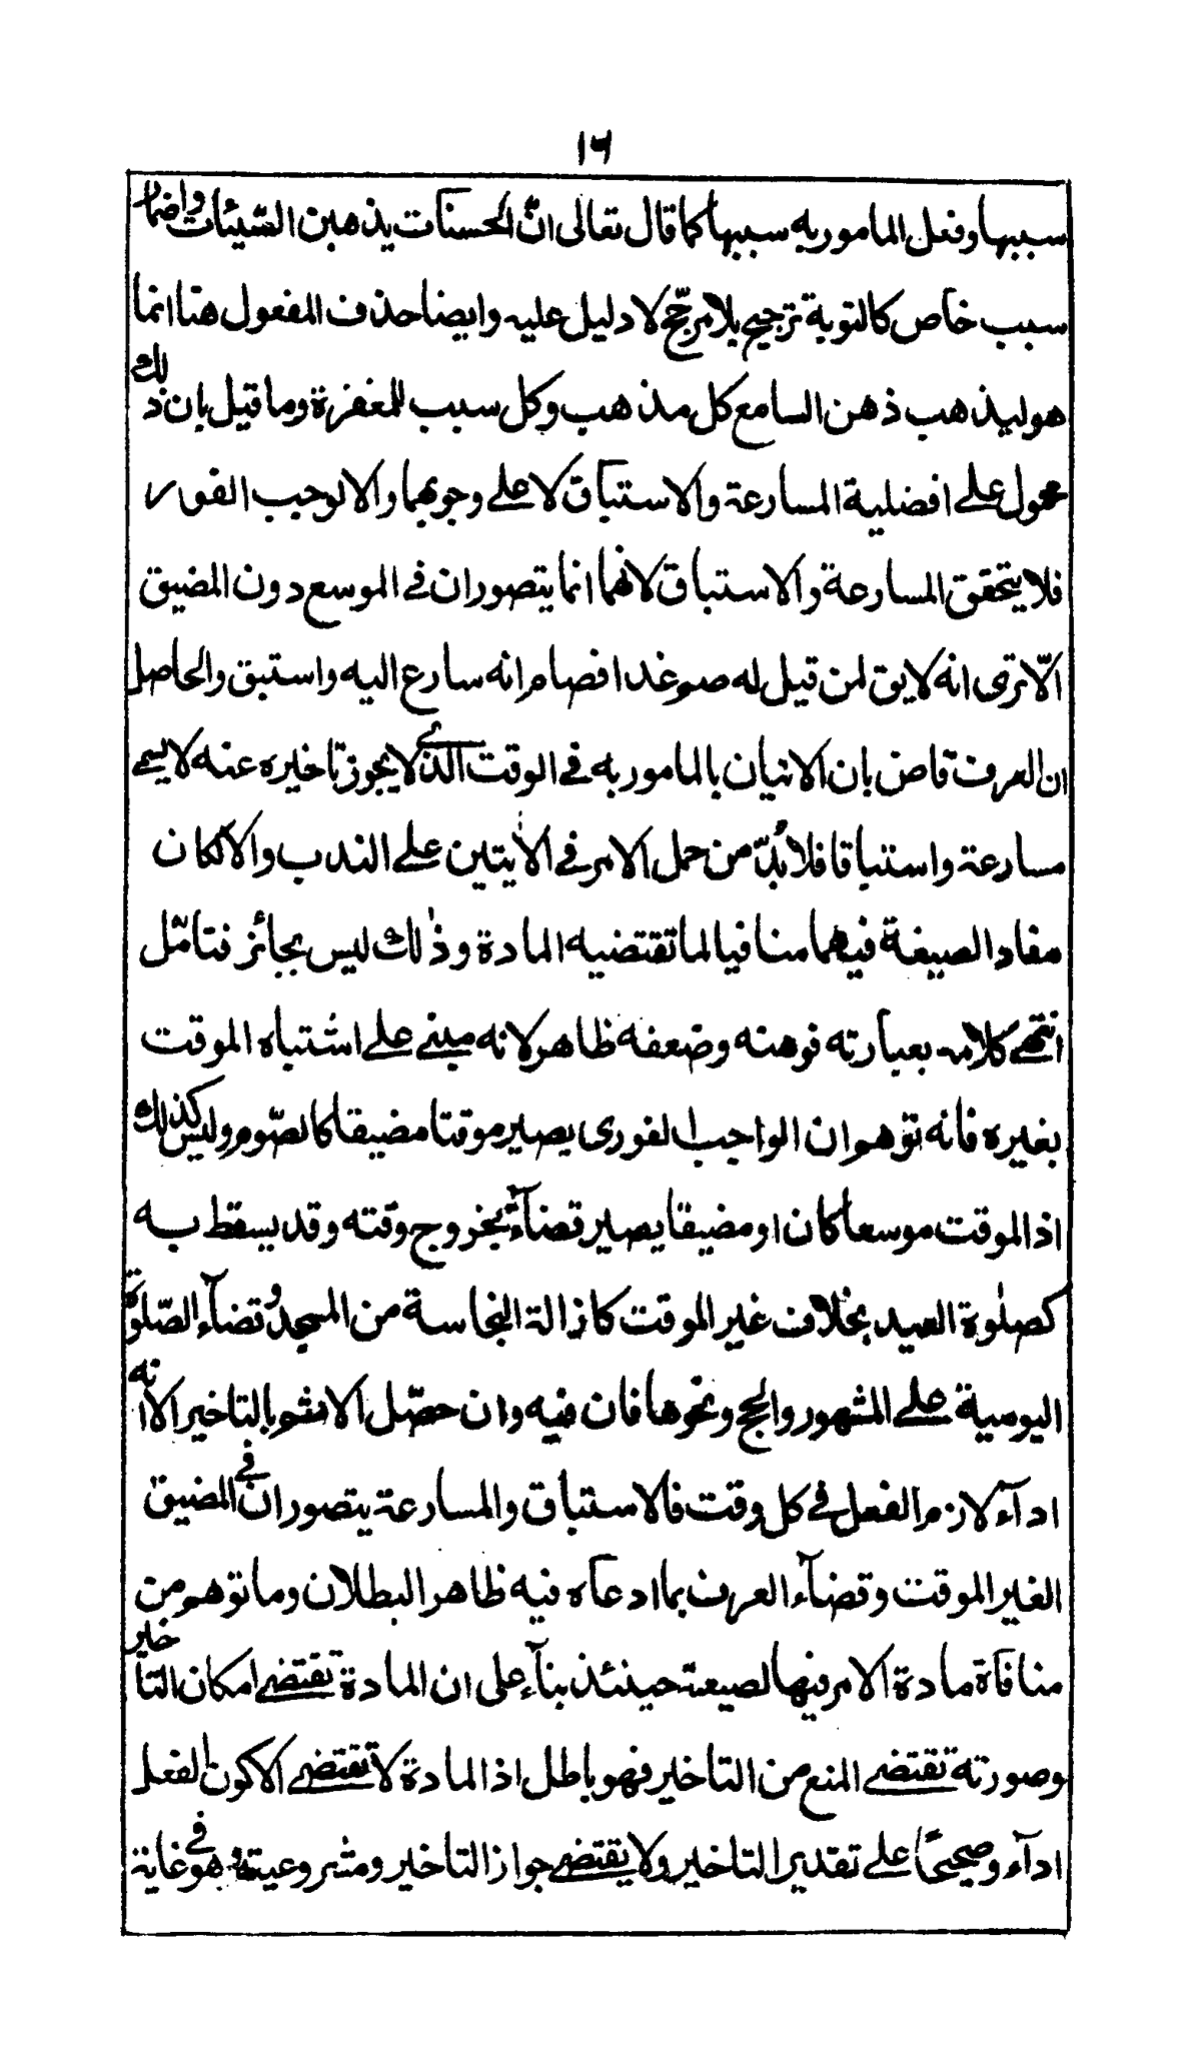 ١٦
سببها وفعل المامور به سببها كما قال تعالى انّ الحسنات يذهبن السّيئات واضمار
سبب خاص كالتوبة ترجيح بلا مرجّح لا دليل عليه وايضا حذف المفعول هنا انما
هو ليذهب ذهن السامع كل مذهب وكل سبب للمغفرة وما قيل بان ذلك
محمول على افضلية المسارعة والاستباق لا على وجوبهما والا لوجب الفور
فلا يتحقق المسارعة والاستباق لانهما انما يتصوران في الموسع دون المضيق
الّا ترى انه لا يق لمن قيل له صم غدا فصام انه سارع اليه واستبق والحاصل
ان العرف قاض بان الاتيان بالمامور به في الوقت الذى لا يجوز تاخيره عنه لا يسمى
مسارعة واستباقا فلا بُدّ من حمل الامر في الايتين على الندب والا لكان
مفاد الصيغة فيهما منافيا لما تقتضيه المادة وذٰلك ليس بجائز فتامّل
انتهى كلامه بعبارته فوهنه وضعفه ظاهر لانه مبنى على اشتباه الموقت
بغيره فانه توهم ان الواجب الفورى يصير موقتا مضيقا كالصّوم وليس كذلك
اذ الموقت موسعا كان او مضيقا يصير قضاءً بخروج وقته وقد يسقط به
كصلٰوة العيد بخلاف غير الموقت كازالة النجاسة من المسجد وقضآء الصّلوة
اليومية على المشهور والحج ونحوها فان فيه وان حصّل الاثم بالتاخير الا انه
ادآء لازم الفعل في كل وقت فالاستباق والمسارعة يتصوران في المضيق
الغير الموقت وقضآء العرف بما ادعاه فيه ظاهر البطلان وما توهم من
منافاة مادة الامر فيها لصيغة حينئذ بنآء على ان المادة تقتضى امكان التاخير
وصورته تقتضى المنع من التاخير فهو باطل اذ المادة لا تقتضى الا كون الفعل
ادآء وصحيحًا على تقدير التاخير ولا يقتضى جواز التاخير ومشروعيته وهو في غاية